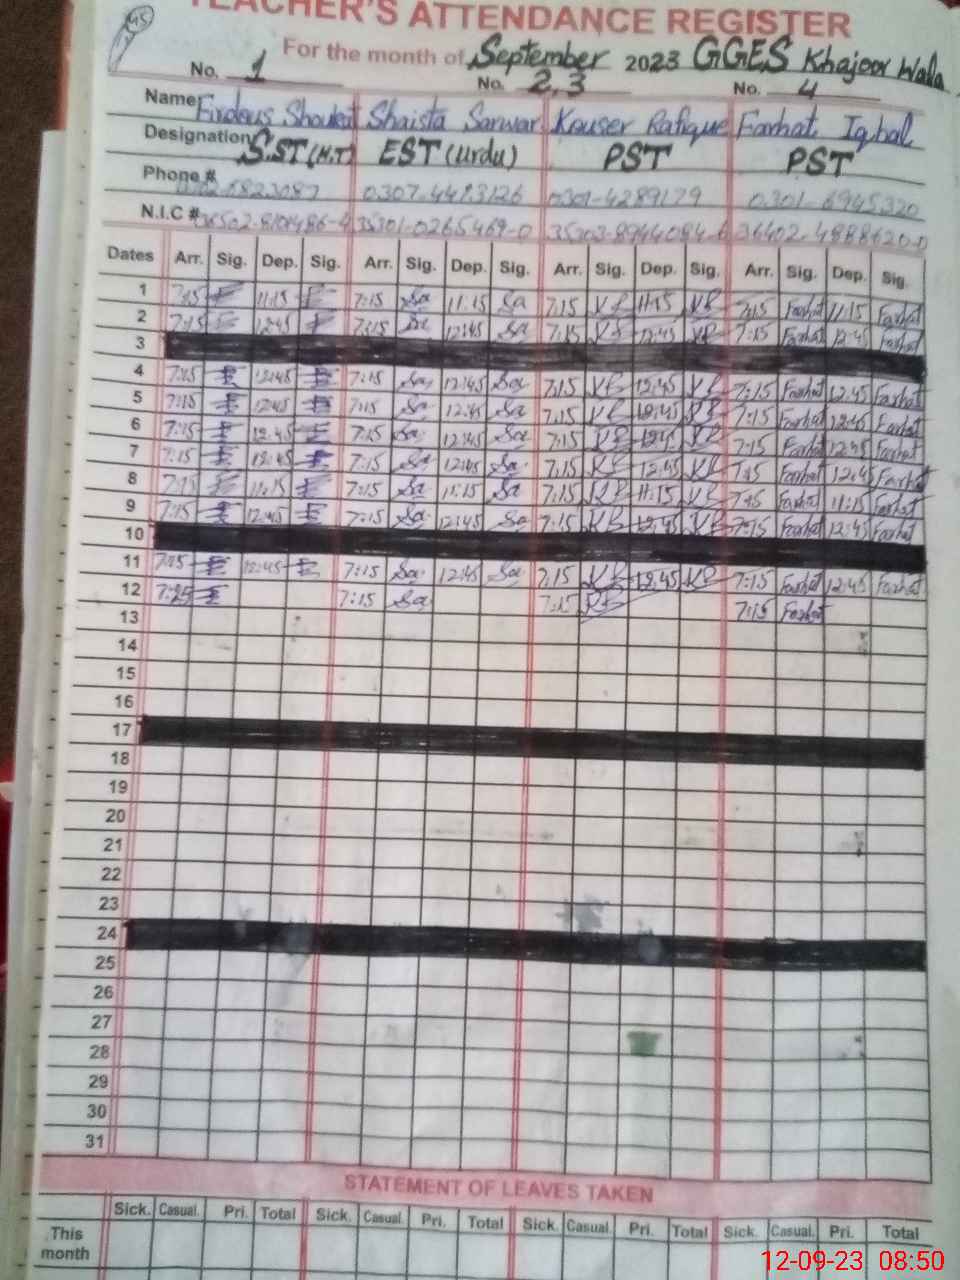 TEACHER'S ATTENDANCE REGISTER
45
For the month of September 2023 GGES Khajoor Wala
No. 1 No. 2,3 No. 4
Name Firdous Shoukat Shaista Sarwar Kouser Rafique Farhat Iqbal
Designation S.ST (H.T) EST (Urdu) PST PST
Phone # 0307-4473126 0301-4289179 0301-6945320
N.I.C # 35301-0265469-0
Dates Arr. Sig. Dep. Sig. Arr. Sig. Dep. Sig. Arr. Sig. Dep. Sig. Arr. Sig. Dep. Sig.
1 7:15 11:15 7:15 Sa 11:15 Sa 7:15 KR 11:15 KR 7:15 Farhat 11:15 Farhat
2 7:15 12:45 7:15 Sa 12:45 Sa 7:15 KR 12:45 KR 7:15 Farhat 12:45 Farhat
3
4 7:15 12:45 7:15 Sa 12:45 Sa 7:15 KR 12:45 KR 7:15 Farhat 12:45 Farhat
5 7:15 12:45 7:15 Sa 12:45 Sa 7:15 KR 12:45 KR 7:15 Farhat 12:45 Farhat
6 7:15 12:45 7:15 Sa 12:45 Sa 7:15 KR 12:45 KR 7:15 Farhat 12:45 Farhat
7 7:15 12:45 7:15 Sa 12:45 Sa 7:15 KR 12:45 KR 7:15 Farhat 12:45 Farhat
8 7:15 11:15 7:15 Sa 11:15 Sa 7:15 KR 11:15 KR 7:15 Farhat 11:15 Farhat
9 7:15 12:45 7:15 Sa 12:45 Sa 7:15 KR 12:45 KR 7:15 Farhat 12:45 Farhat
10
11 7:15 12:45 7:15 Sa 12:45 Sa 7:15 KR 12:45 KR 7:15 Farhat 12:45 Farhat
12 7:15 Sa 7:15 KR 7:15 Farhat
13
14
15
16
17
18
19
20
21
22
23
24
25
26
27
28
29
30
31
STATEMENT OF LEAVES TAKEN
Sick. Casual. Pri. Total Sick. Casual. Pri. Total Sick. Casual. Pri. Total Sick. Casual. Pri. Total
This month
12-09-23 08:50